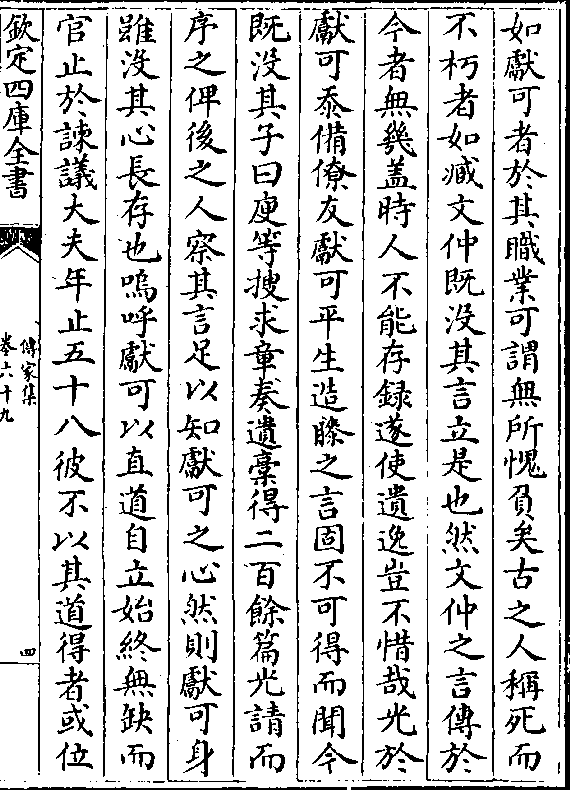 如獻可者於其職業可謂無所愧負矣古之人稱死而
不朽者如臧文仲既没其言立是也然文仲之言傳於
今者無幾盖時人不能存録遂使遺逸豈不惜哉光於
獻可忝備僚友獻可平生造膝之言固不可得而聞今
既没其子曰庾等搜求章奏遺稾得二百餘篇光請而
序之俾後之人察其言足以知獻可之心然則獻可身
雖没其心長存也嗚呼獻可以直道自立始終無缺而
官止於諫議大夫年止五十八彼不以其道得者或位
欽定四庫全書
傳家集
卷六十九
四